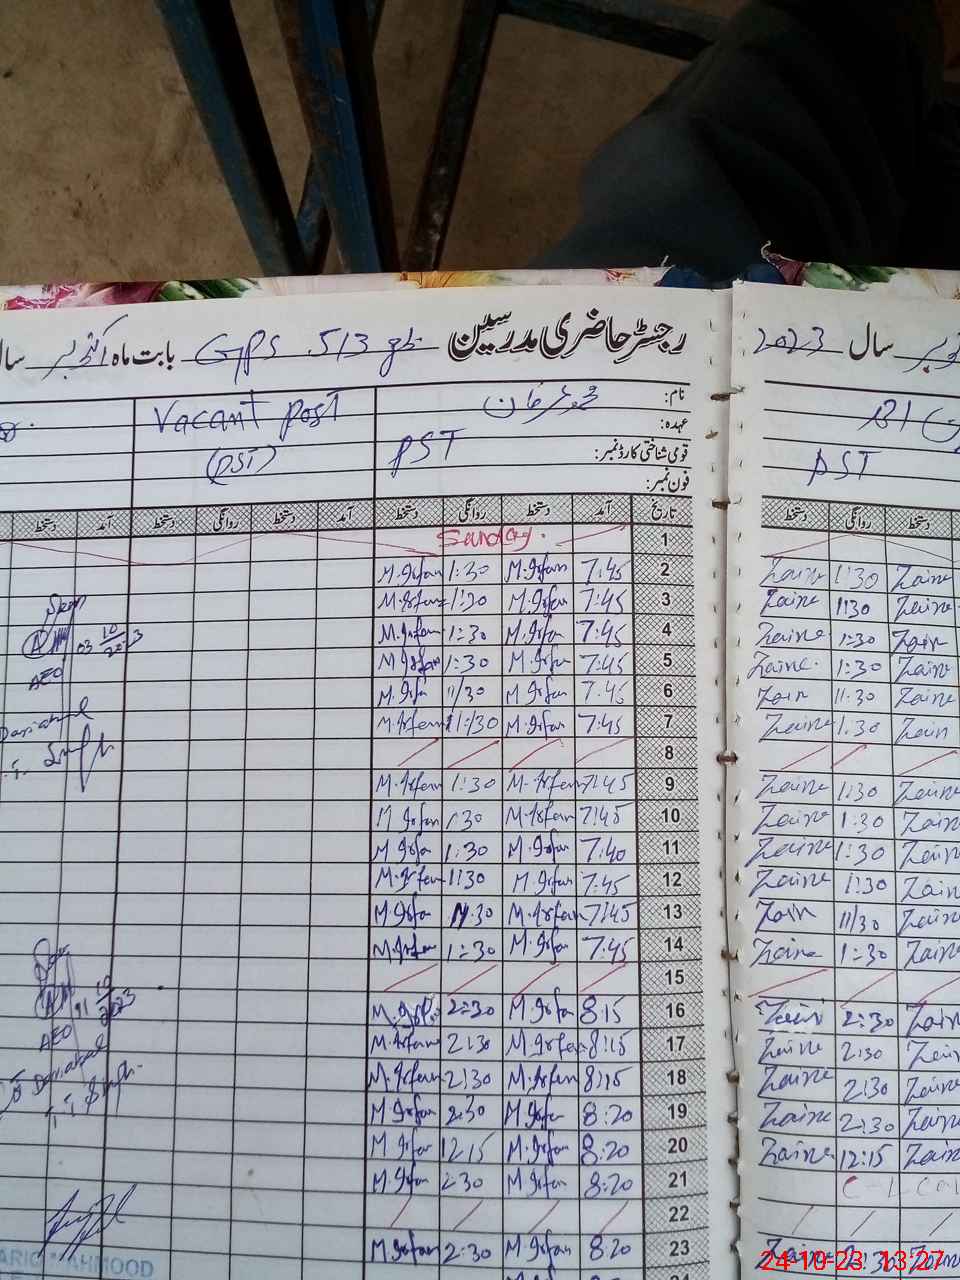 رجسٹر حاضری مدرسین GPS 513 gb بابت ماہ اکتوبر
سال 2023
نام: محمد عرفان
عہدہ:
قومی شناختی کارڈ نمبر: PST
فون نمبر:
Vacant post
(PST)
PST
تاریخ آمد دستخط روانگی دستخط آمد دستخط روانگی دستخط آمد دستخط
دستخط روانگی دستخط
1 Sunday.
2 7:45 M.Irfan 1:30 M.Irfan
3 7:45 M.Irfan 1:30 M.Irfan
4 7:45 M.Irfan 1:30 M.Irfan
5 7:45 M.Irfan 1:30 M.Irfan
6 7:45 M.Irfan 11/30 M.Irfa
7 7:45 M.Irfan 11:30 M.Irfan
8
9 7:45 M.Irfan 1:30 M.Irfan
10 7:45 M.Irfan 1:30 M Irfan
11 7:40 M.Irfan 1:30 M Irfan
12 7:45 M.Irfan 1:30 M.Irfan
13 7:45 M.Irfan 11:30 M.Irfan
14 7:45 M.Irfan 1:30 M.Irfan
15
16 8:15 M.Irfan 2:30 M.Irfan
17 8:15 M.Irfan 2:30 M.Irfan
18 8:15 M.Irfan 2:30 M.Irfan
19 8:20 M.Irfan 2:30 M Irfan
20 8:20 M.Irfan 12:15 M Irfan
21 8:20 M.Irfan 2:30 M Irfan
22
23 8:20 M.Irfan 2:30 M.Irfan
Zain 1:30 Zain
Zain 1:30 Zain
Zain 1:30 Zain
Zain 1:30 Zain
Zain 11:30 Zain
Zain 1:30 Zain
Zain 1:30 Zain
Zain 1:30 Zain
Zain 1:30 Zain
Zain 1:30 Zain
Zain 11/30 Zain
Zain 1:30 Zain
Zain 2:30 Zain
Zain 2:30 Zain
Zain 2:30 Zain
Zain 2:30 Zain
Zain 12:15 Zain
Zain 2:30
03 10 2023
AEO
10 2023
AEO
MAHMOOD
24-10-23 13:27